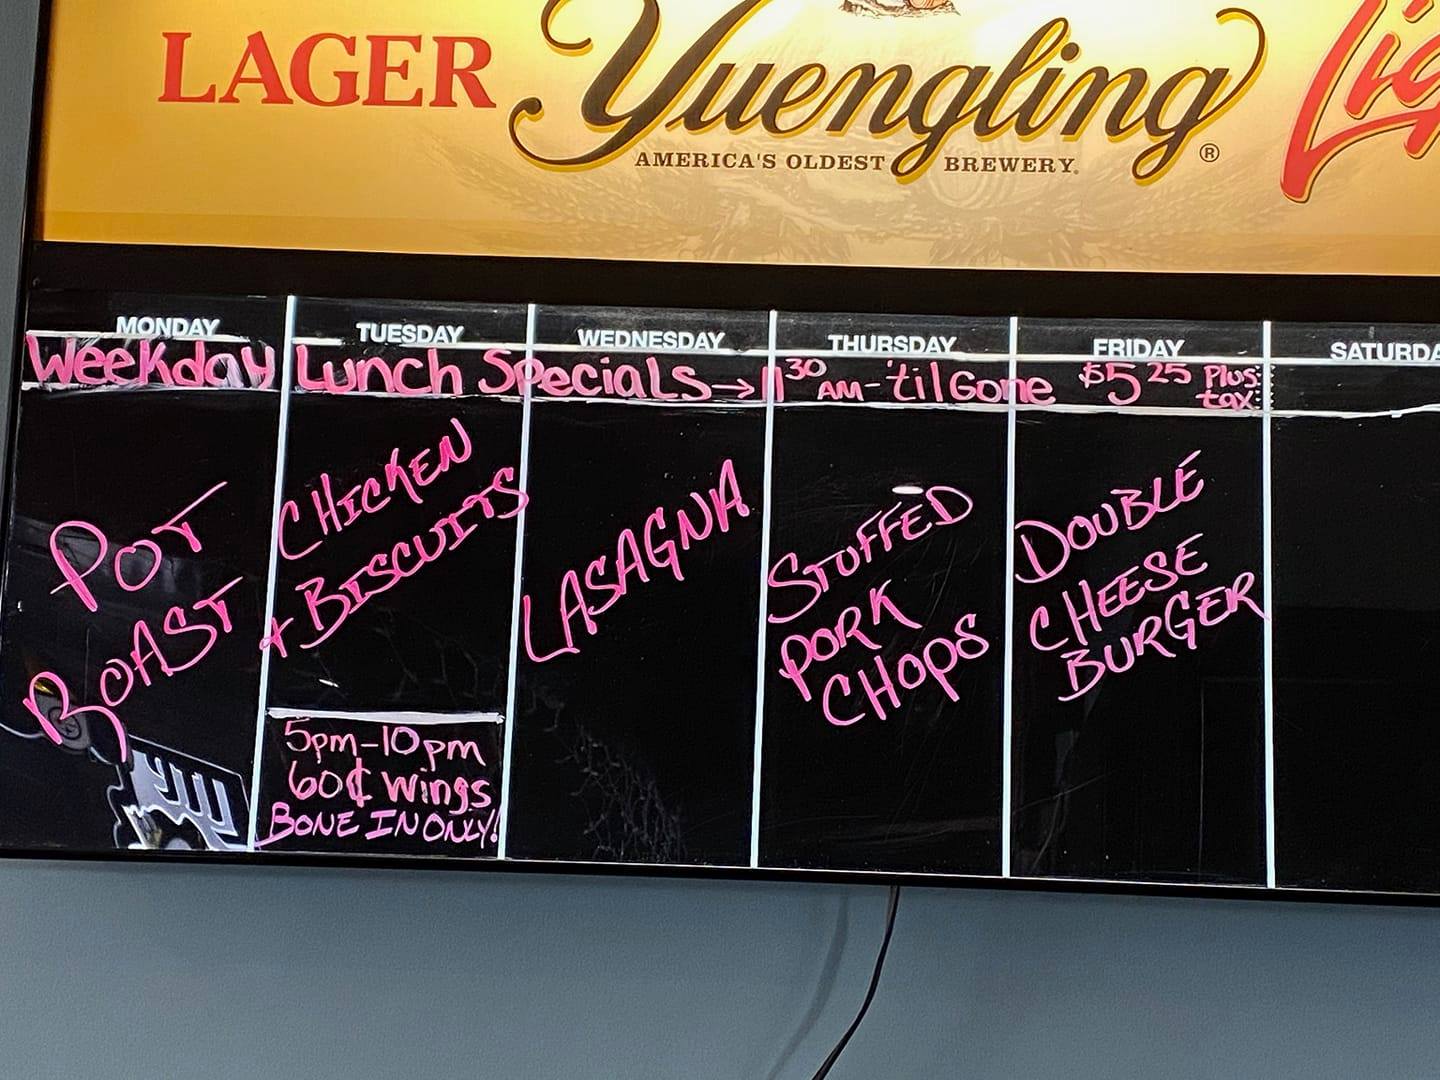 LAGER Yuengling Lig
AMERICA'S OLDEST BREWERY.
MONDAY TUESDAY WEDNESDAY THURSDAY FRIDAY SATURDA
Weekday Lunch Specials→ 11 30 AM-'til Gone $5 25 Plus tax
POT
ROAST
CHICKEN
+ BISCUITS
5pm-10pm
60¢ Wings
BONE IN ONLY!
LASAGNA
STUFFED
PORK
CHOPS
DOUBLE
CHEESE
BURGER